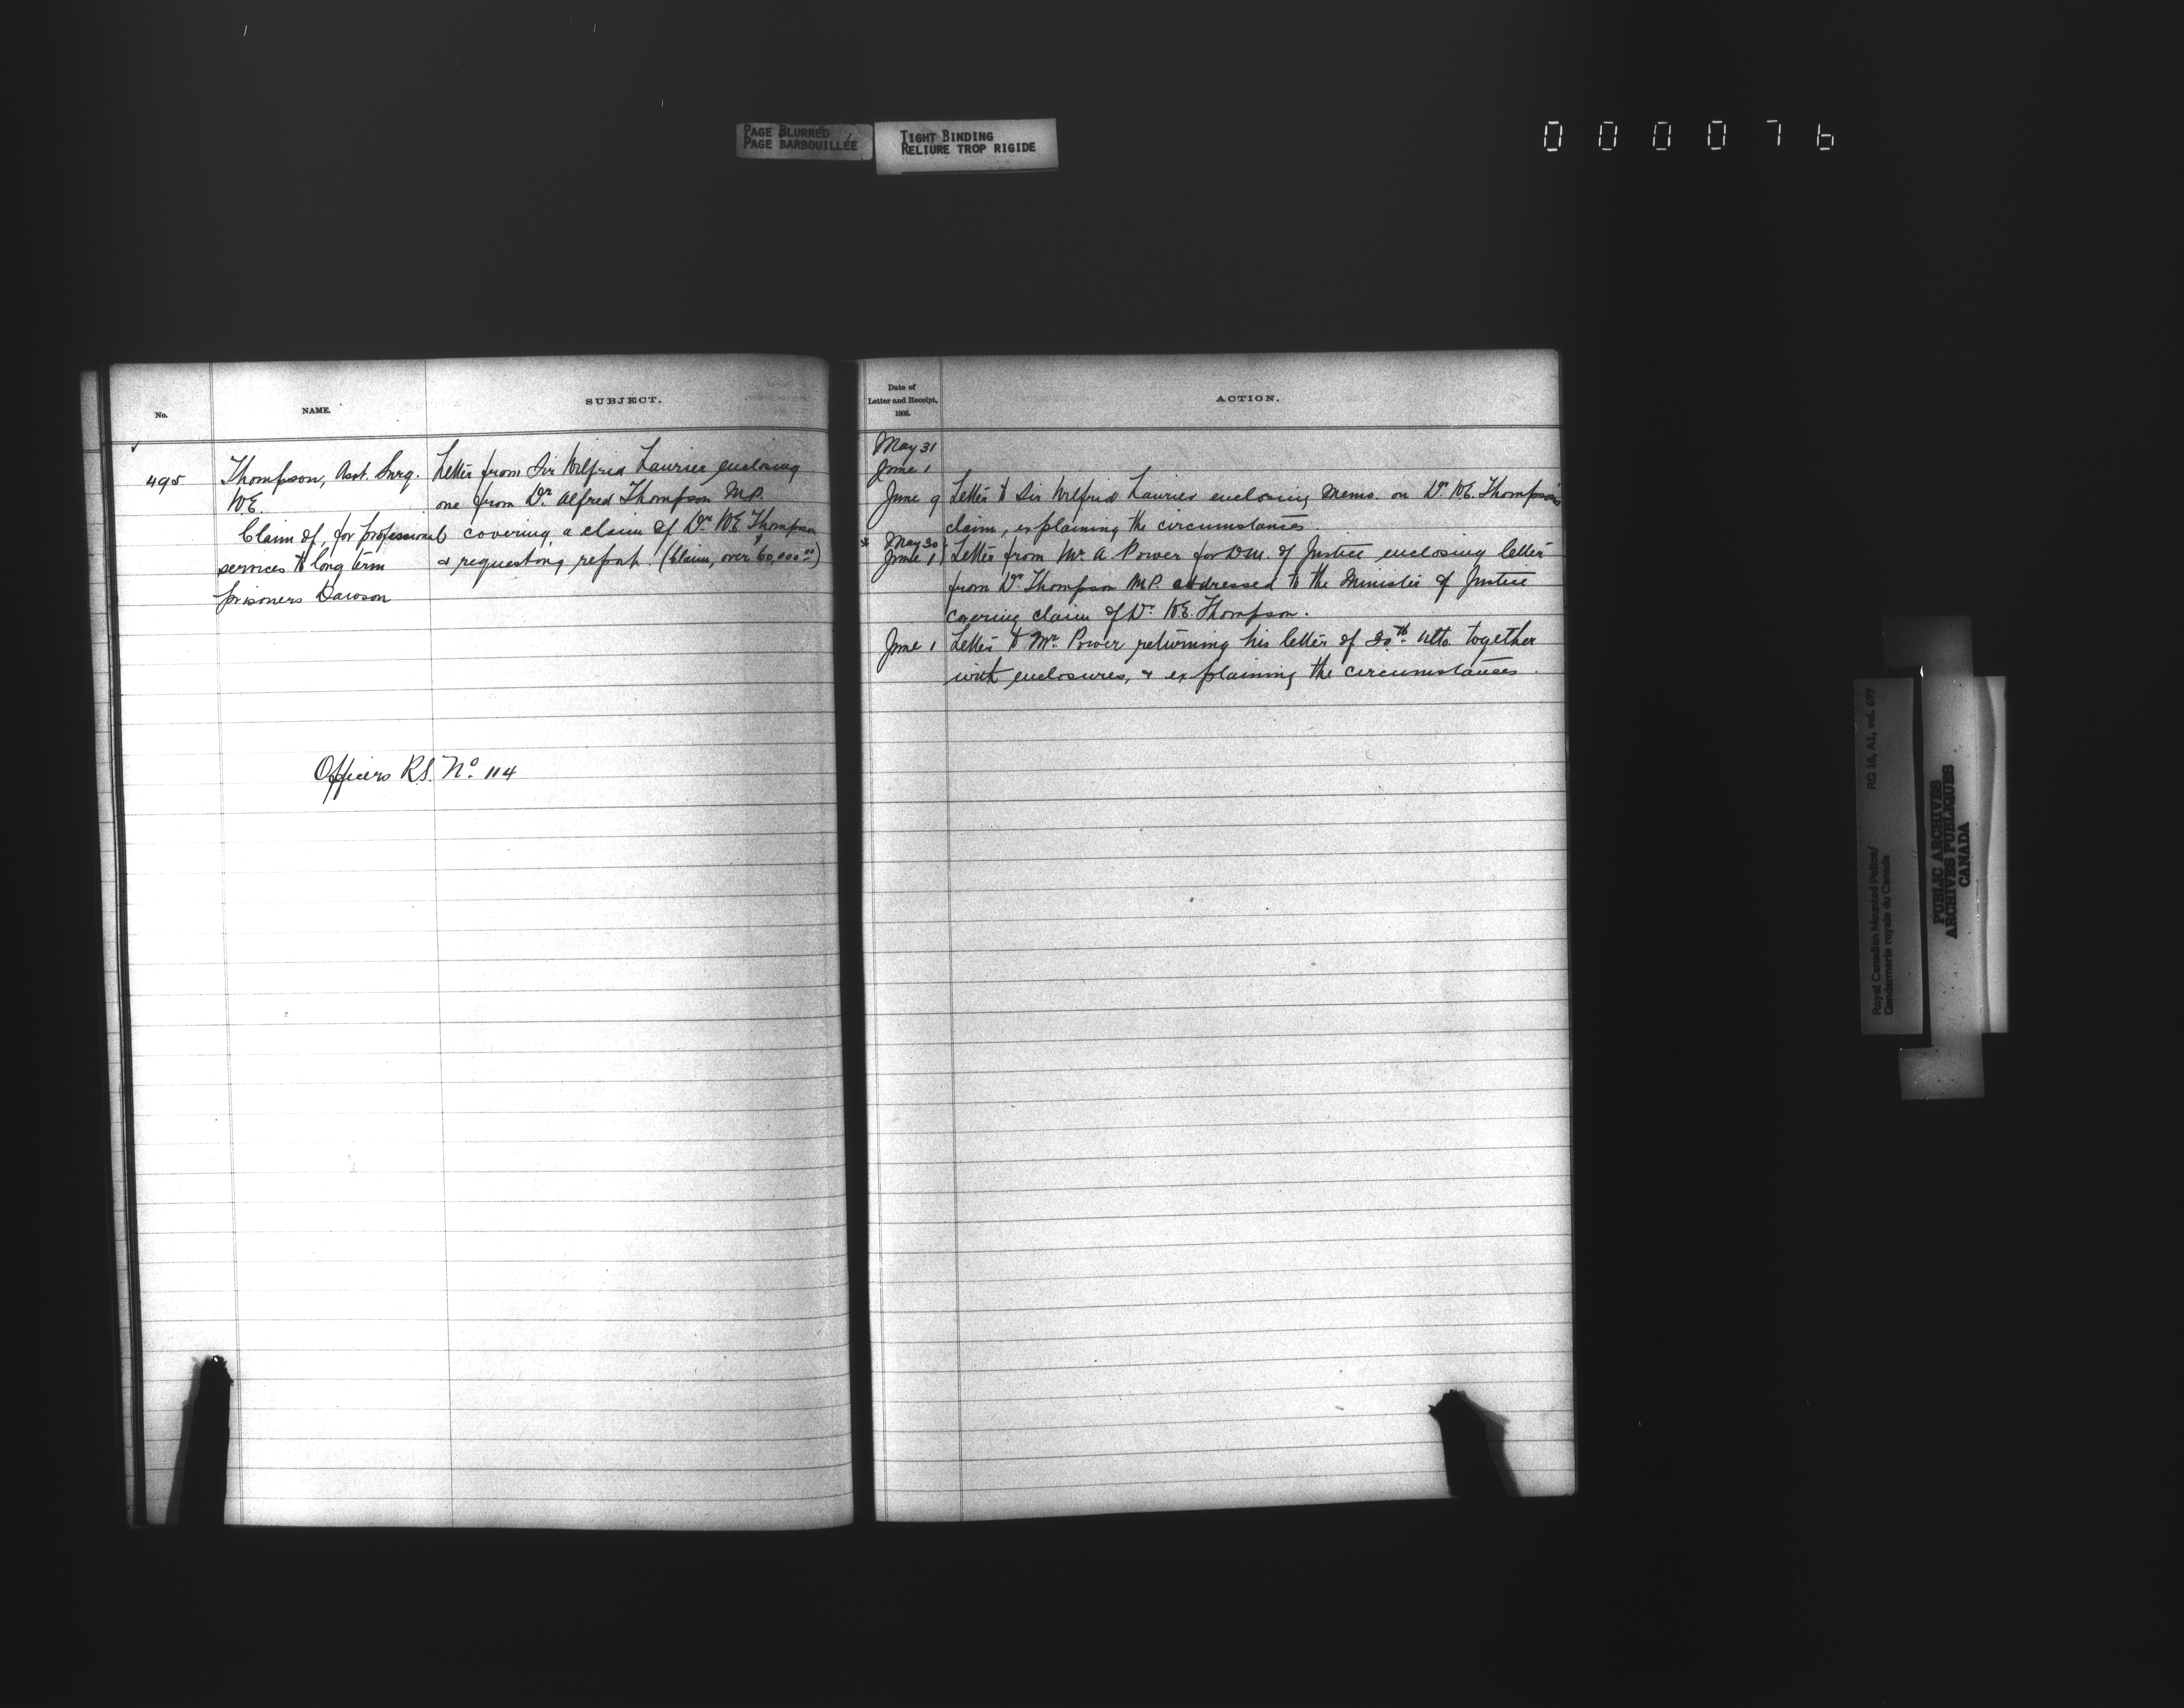 PAGE BLURRED
PAGE BARBOUILLÉE
TIGHT BINDING
RELIURE TROP RIGIDE
000076
No.
NAME.
SUBJECT.
495
Thompson, Asst. Surg.
W.E.
Claim of, for professional
services to long term
prisoners Dawson
Letter from Sir Wilfrid Laurier enclosing
one from Dr. Alfred Thompson M.P.
covering a claim of Dr. W.E. Thompson
& requesting report. (Claim, over $60,000.00)
Officers R.S. No. 114
Date of
Letter and Receipt,
1906.
ACTION.
May 31
June 1
June 9 Letter to Sir Wilfrid Laurier enclosing Memo. on Dr. W.E. Thompson's
claim, explaining the circumstances.
* May 30
June 1 } Letter from Mr. A. Power for D.M. of Justice enclosing letter
from Dr. Thompson M.P. addressed to the Minister of Justice
covering claim of Dr. W.E. Thompson.
June 1 Letter to Mr. Power returning his letter of 30th. ulto. together
with enclosures, & explaining the circumstances.
RG 18, A1, vol. 699
Royal Canadian Mounted Police/
Gendarmerie royale du Canada
PUBLIC ARCHIVES
ARCHIVES PUBLIQUES
CANADA